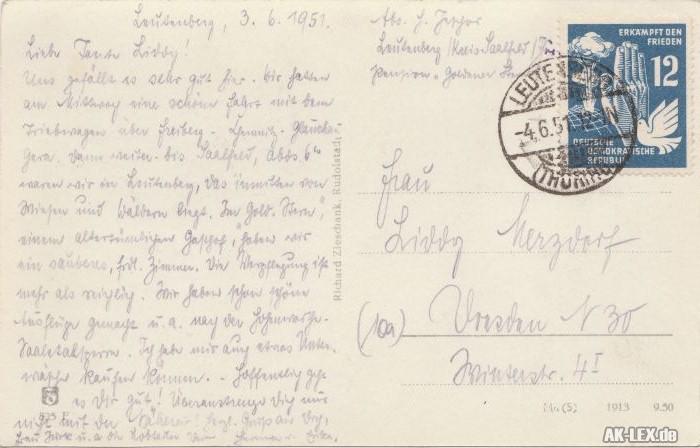 Leutenberg, 3.6.1951.
Liebe Tante Liddy!
Uns gefällt es sehr gut hier. Wir hatten
am Mittwoch eine schöne Fahrt mit dem
Triebwagen über Freiberg - Chemnitz - Glauchau
Gera. Dann weiter bis Saalfeld, abds 6
waren wir in Leutenberg, das inmitten von
Wiesen und Wäldern liegt. Im "Gold. Stern",
einem altertümlichen Gasthof, haben wir
ein sauberes, frdl. Zimmer. Die Verpflegung ist
mehr als reichlich. Wir haben schon schöne
Ausflüge gemacht u.a. nach der Hohenwarte-
Saaletalsperre. Ich habe mir auch etwas Unter-
wäsche kaufen können. - Hoffentlich geht
es Dir gut! Überanstrenge Dich nur
nicht mit der Näherei! Herzl. Grüße an Dich,
u.a. die
825 F
Richard Zieschank, Rudolstadt
Abs. H.
Leutenberg / Kreis Saalfeld /
Pension "Goldener Stern
ERKÄMPFT DEN
FRIEDEN
12
DEUTSCHE
DEMOKRATISCHE
REPUBLIK
LEUTENBERG
-4.6.51
(THÜRING
Frau
Liddy Merzdorf
(10a) Dresden N 30
Winterstr. 4 I
(S) 1913 9.50
AK-LEX.de